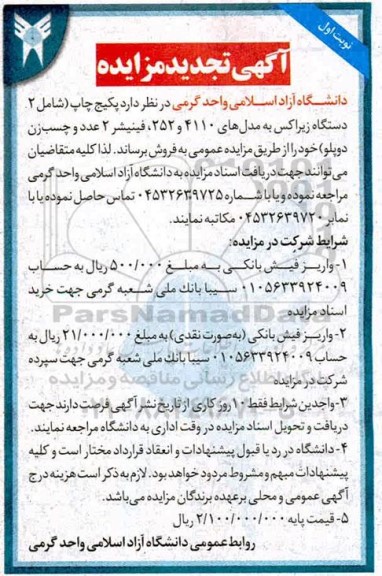 نوبت اول
آگهی تجدید مزایده
دانشگاه آزاد اسلامی واحد گرمی در نظر دارد پکیج چاپ (شامل ۲
دستگاه زیراکس به مدل‌های ۴۱۱۰ و ۲۵۲، فینیشر ۲ عدد و چسب زن
دوپلو) خود را از طریق مزایده عمومی به فروش برساند. لذا کلیه متقاضیان
می‌توانند جهت دریافت اسناد مزایده به دانشگاه آزاد اسلامی واحد گرمی
مراجعه نموده و یا با شماره ۰۴۵۳۲۶۳۹۷۲۵ تماس حاصل نموده یا با
نمابر ۰۴۵۳۲۶۳۹۷۲۰ مکاتبه نمایند.
شرایط شرکت در مزایده:
۱- واریز فیش بانکی به مبلغ ۵۰۰/۰۰۰ ریال به حساب
۰۱۰۵۶۳۳۹۲۴۰۰۹ سیبا بانک ملی شعبه گرمی جهت خرید
اسناد مزایده
۲- واریز فیش بانکی (به‌صورت نقدی) به مبلغ ۲۱/۰۰۰/۰۰۰ ریال به
حساب ۰۱۰۵۶۳۳۹۲۴۰۰۹ سیبا بانک ملی شعبه گرمی جهت سپرده
شرکت در مزایده
۳- واجدین شرایط فقط ۱۰ روز کاری از تاریخ نشر آگهی فرصت دارند جهت
دریافت و تحویل اسناد مزایده در وقت اداری به دانشگاه مراجعه نمایند.
۴- دانشگاه در رد یا قبول پیشنهادات و انعقاد قرارداد مختار است و کلیه
پیشنهادات مبهم و مشروط مردود خواهد بود. لازم به ذکر است هزینه درج
آگهی عمومی و محلی بر عهده برندگان مزایده می‌باشد.
۵- قیمت پایه ۲/۱۰۰/۰۰۰/۰۰۰ ریال
روابط عمومی دانشگاه آزاد اسلامی واحد گرمی
ParsNamadData